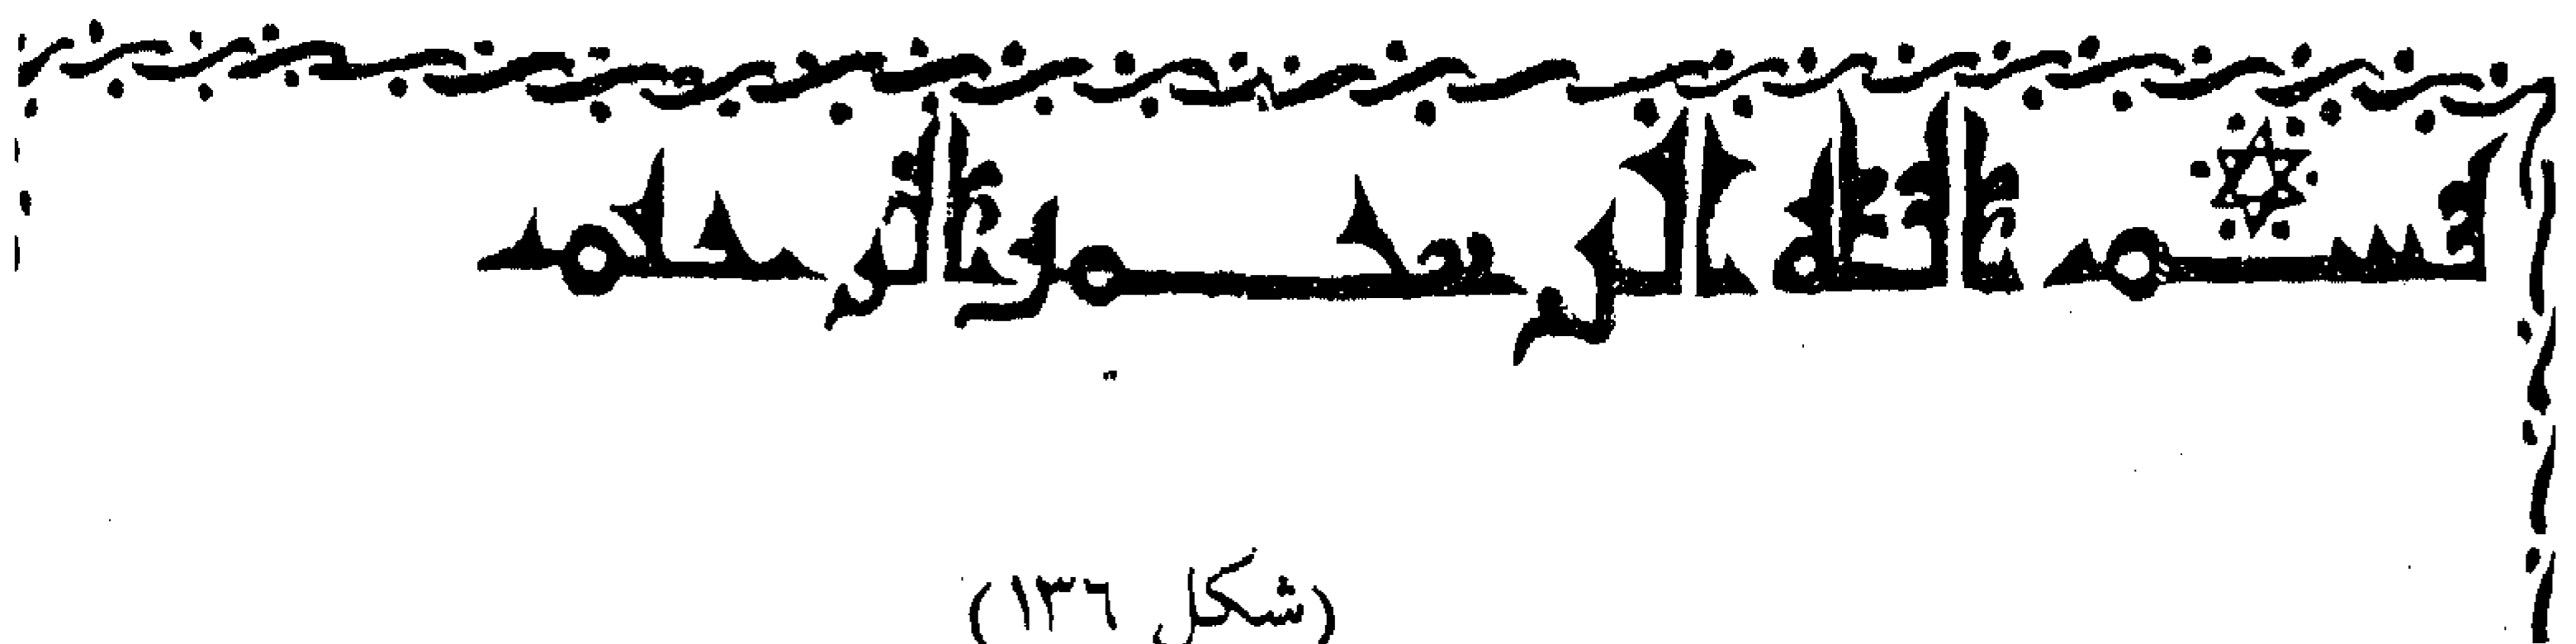 بسم الله الرحمن الرحيم
(شكل ١٣٦)